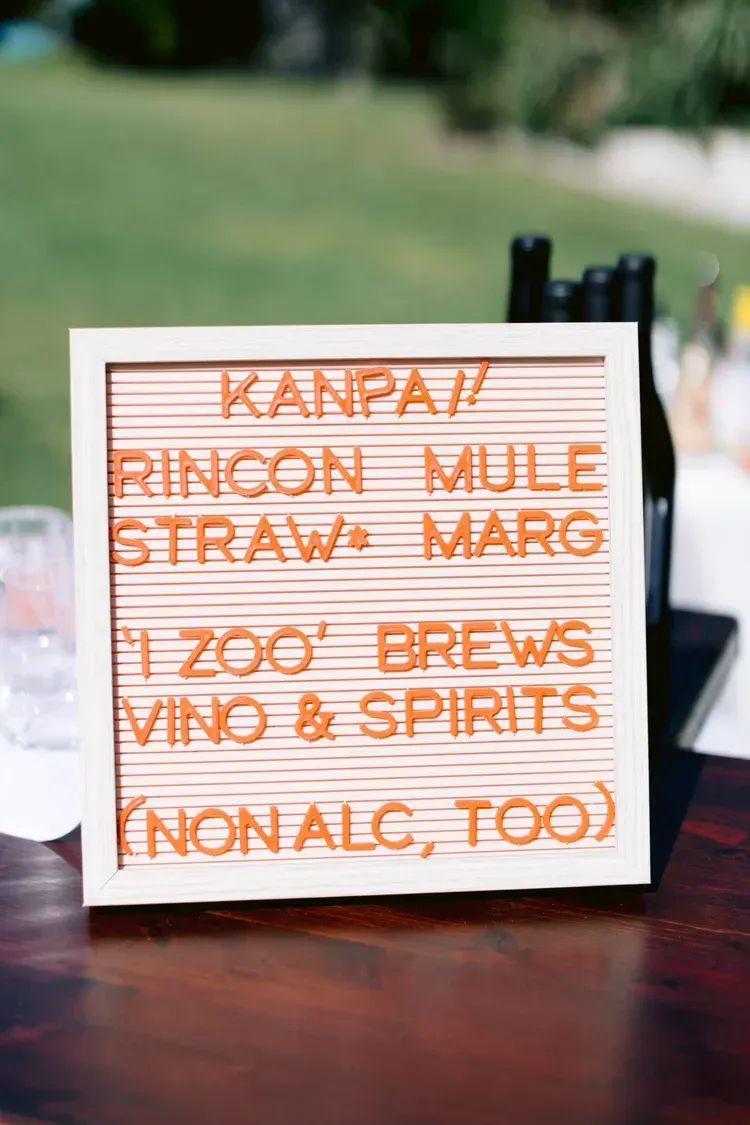 KANPAI!
RINCON MULE
STRAW* MARG
'I ZOO' BREWS
VINO & SPIRITS
(NON ALC, TOO)